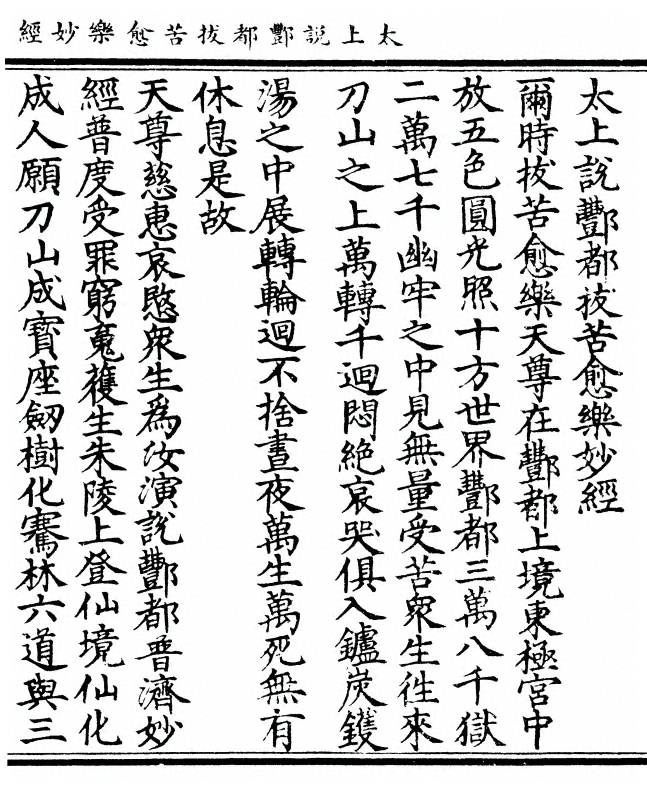 太上說酆都拔苦愈樂妙經
太上說酆都拔苦愈樂妙經
爾時拔苦愈樂天尊在酆都上境東極宮中
放五色圓光照十方世界酆都三萬八千獄
二萬七千幽牢之中見無量受苦衆生徃來
刀山之上萬轉千迴悶絶哀哭俱入鑪炭鑊
湯之中展轉輪迴不捨晝夜萬生萬死無有
休息是故
天尊慈惠哀愍衆生爲汝演說酆都普濟妙
經普度受罪窮䰟獲生朱陵上登仙境仙化
成人願刀山成寶座劒樹化騫林六道與三